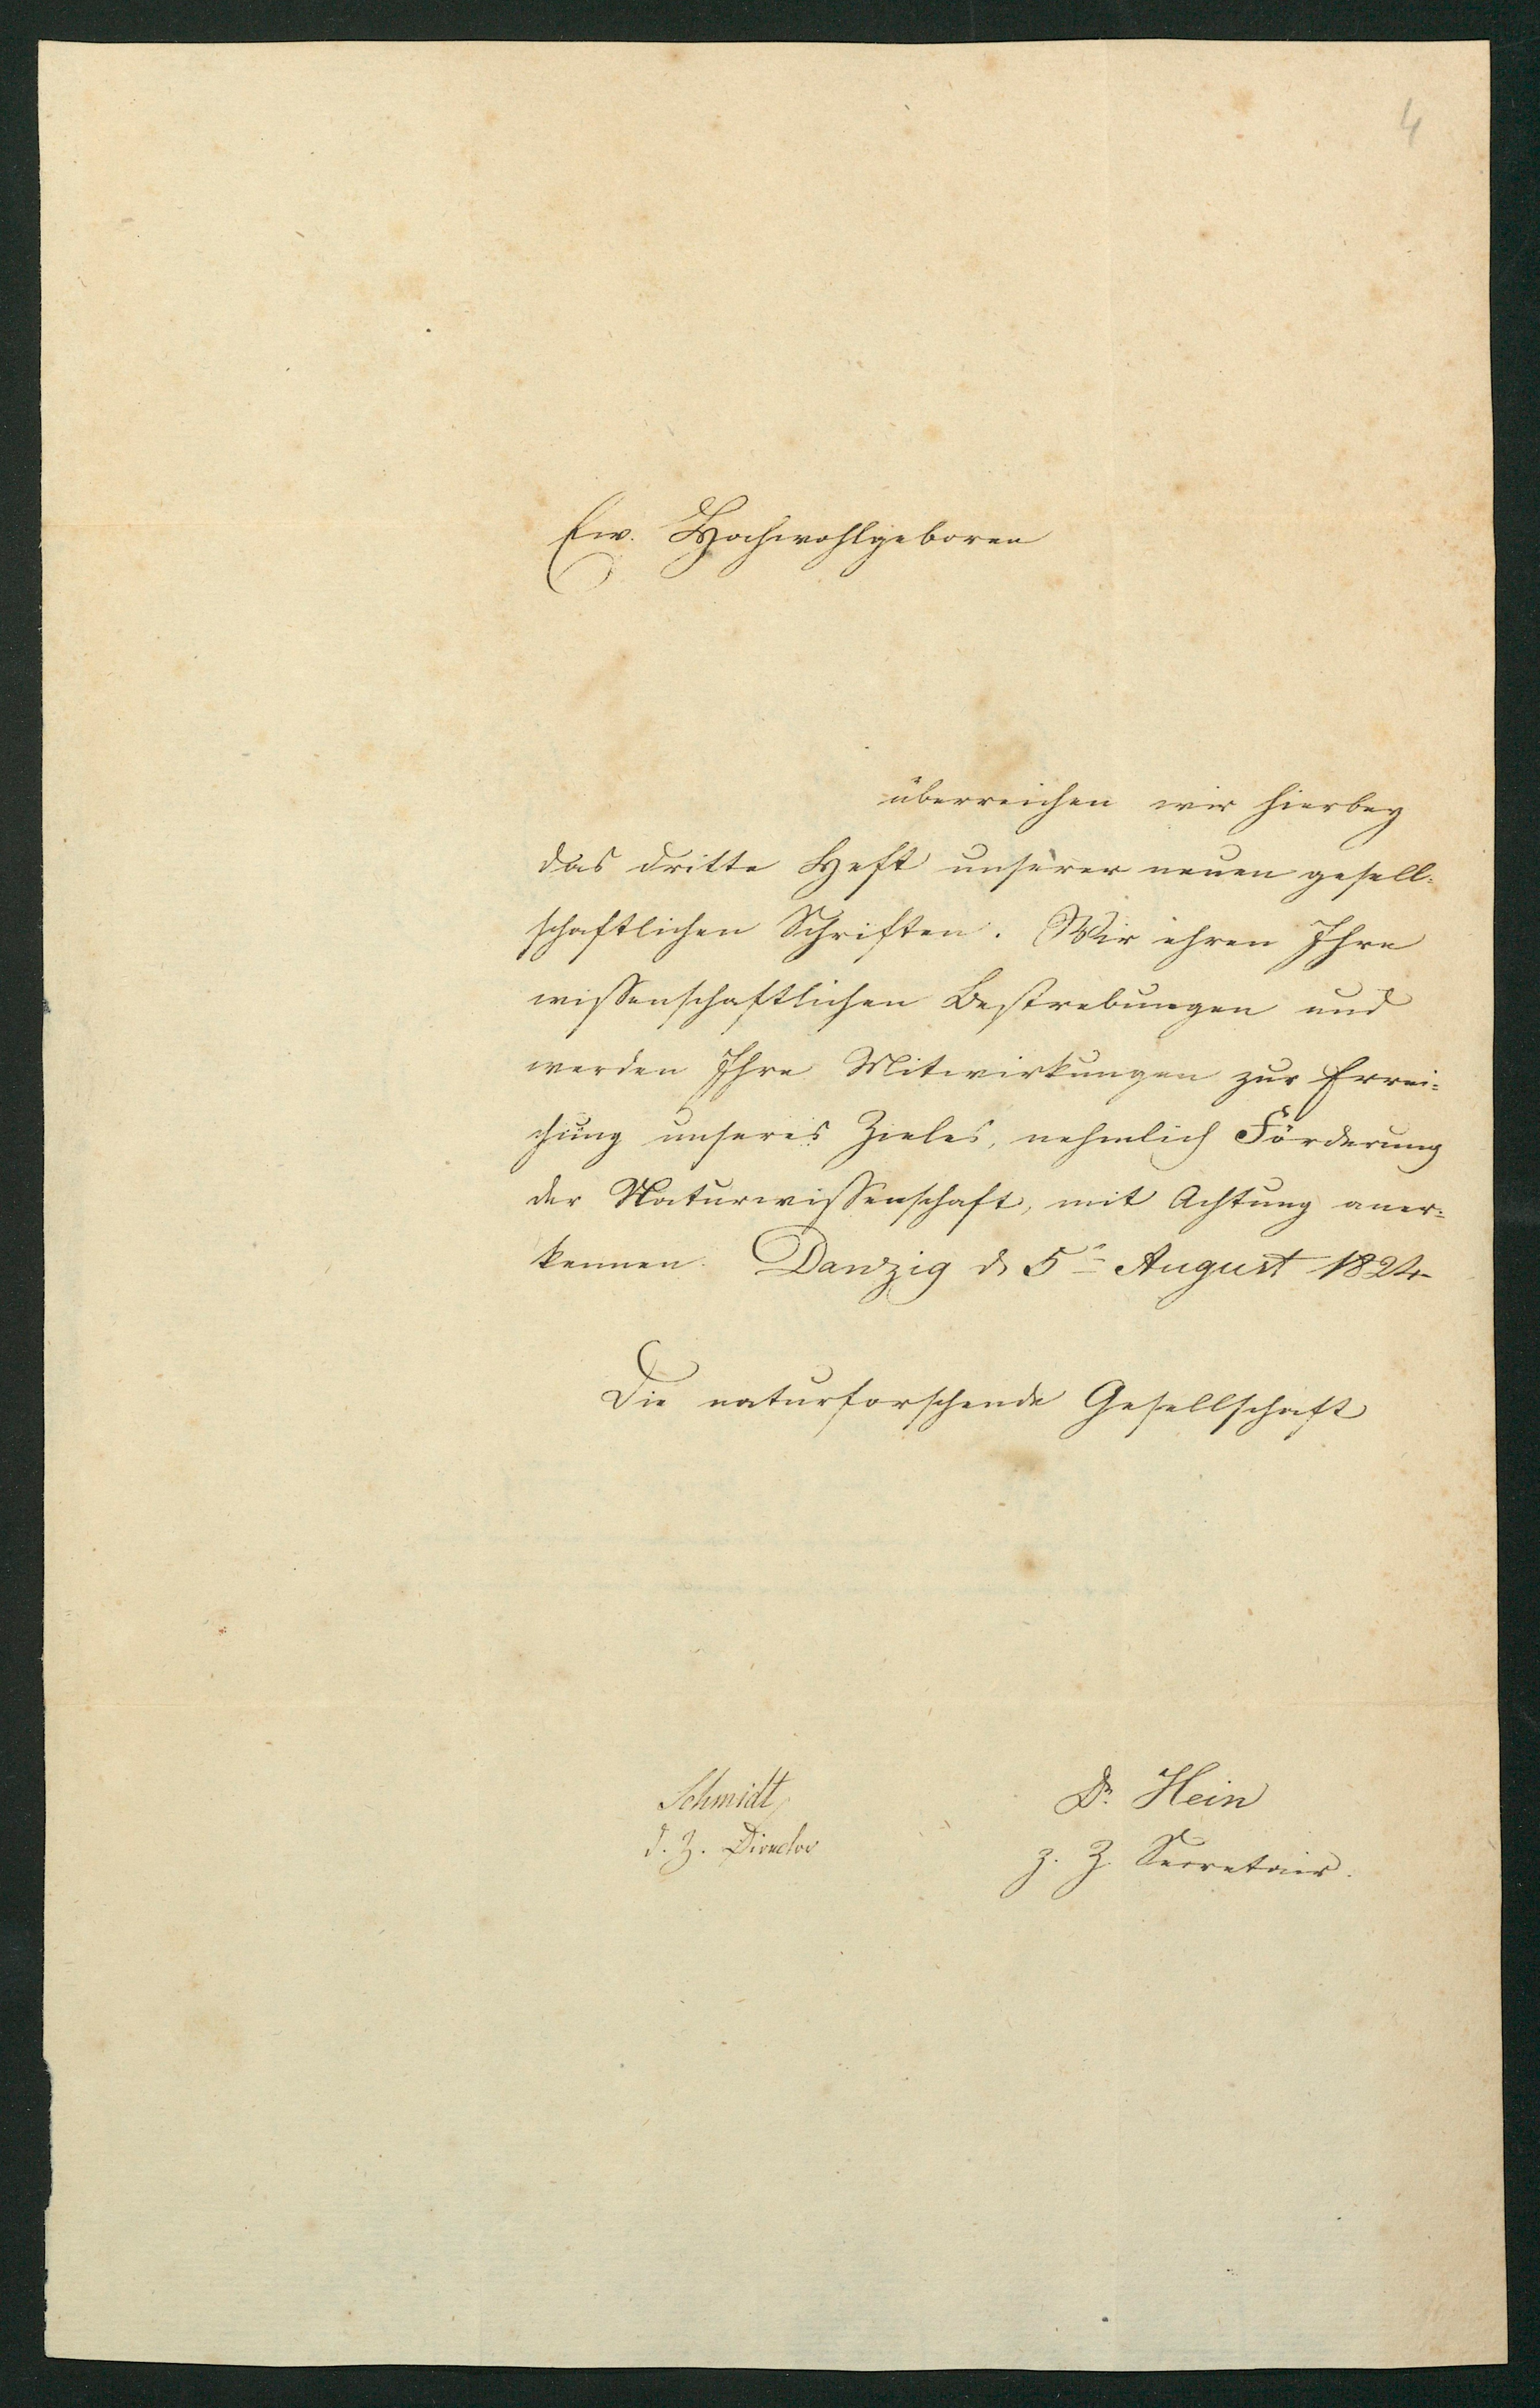 4
Ew. Hochwohlgeboren
überreichen wir hierbey
das dritte Heft unserer neuen gesell-
schaftlichen Schriften. Wir ehren Ihre
wissenschaftlichen Bestrebungen und
werden Ihre Mitwirkungen zur Errei-
chung unseres Zieles, nehmlich Förderung
der Naturwissenschaft, mit Achtung aner-
kennen. Danzig d. 5n August 1824
Die naturforschende Gesellschaft
Schmidt
d. Z. Director
Dr. Hein
z. Z. Secretair.